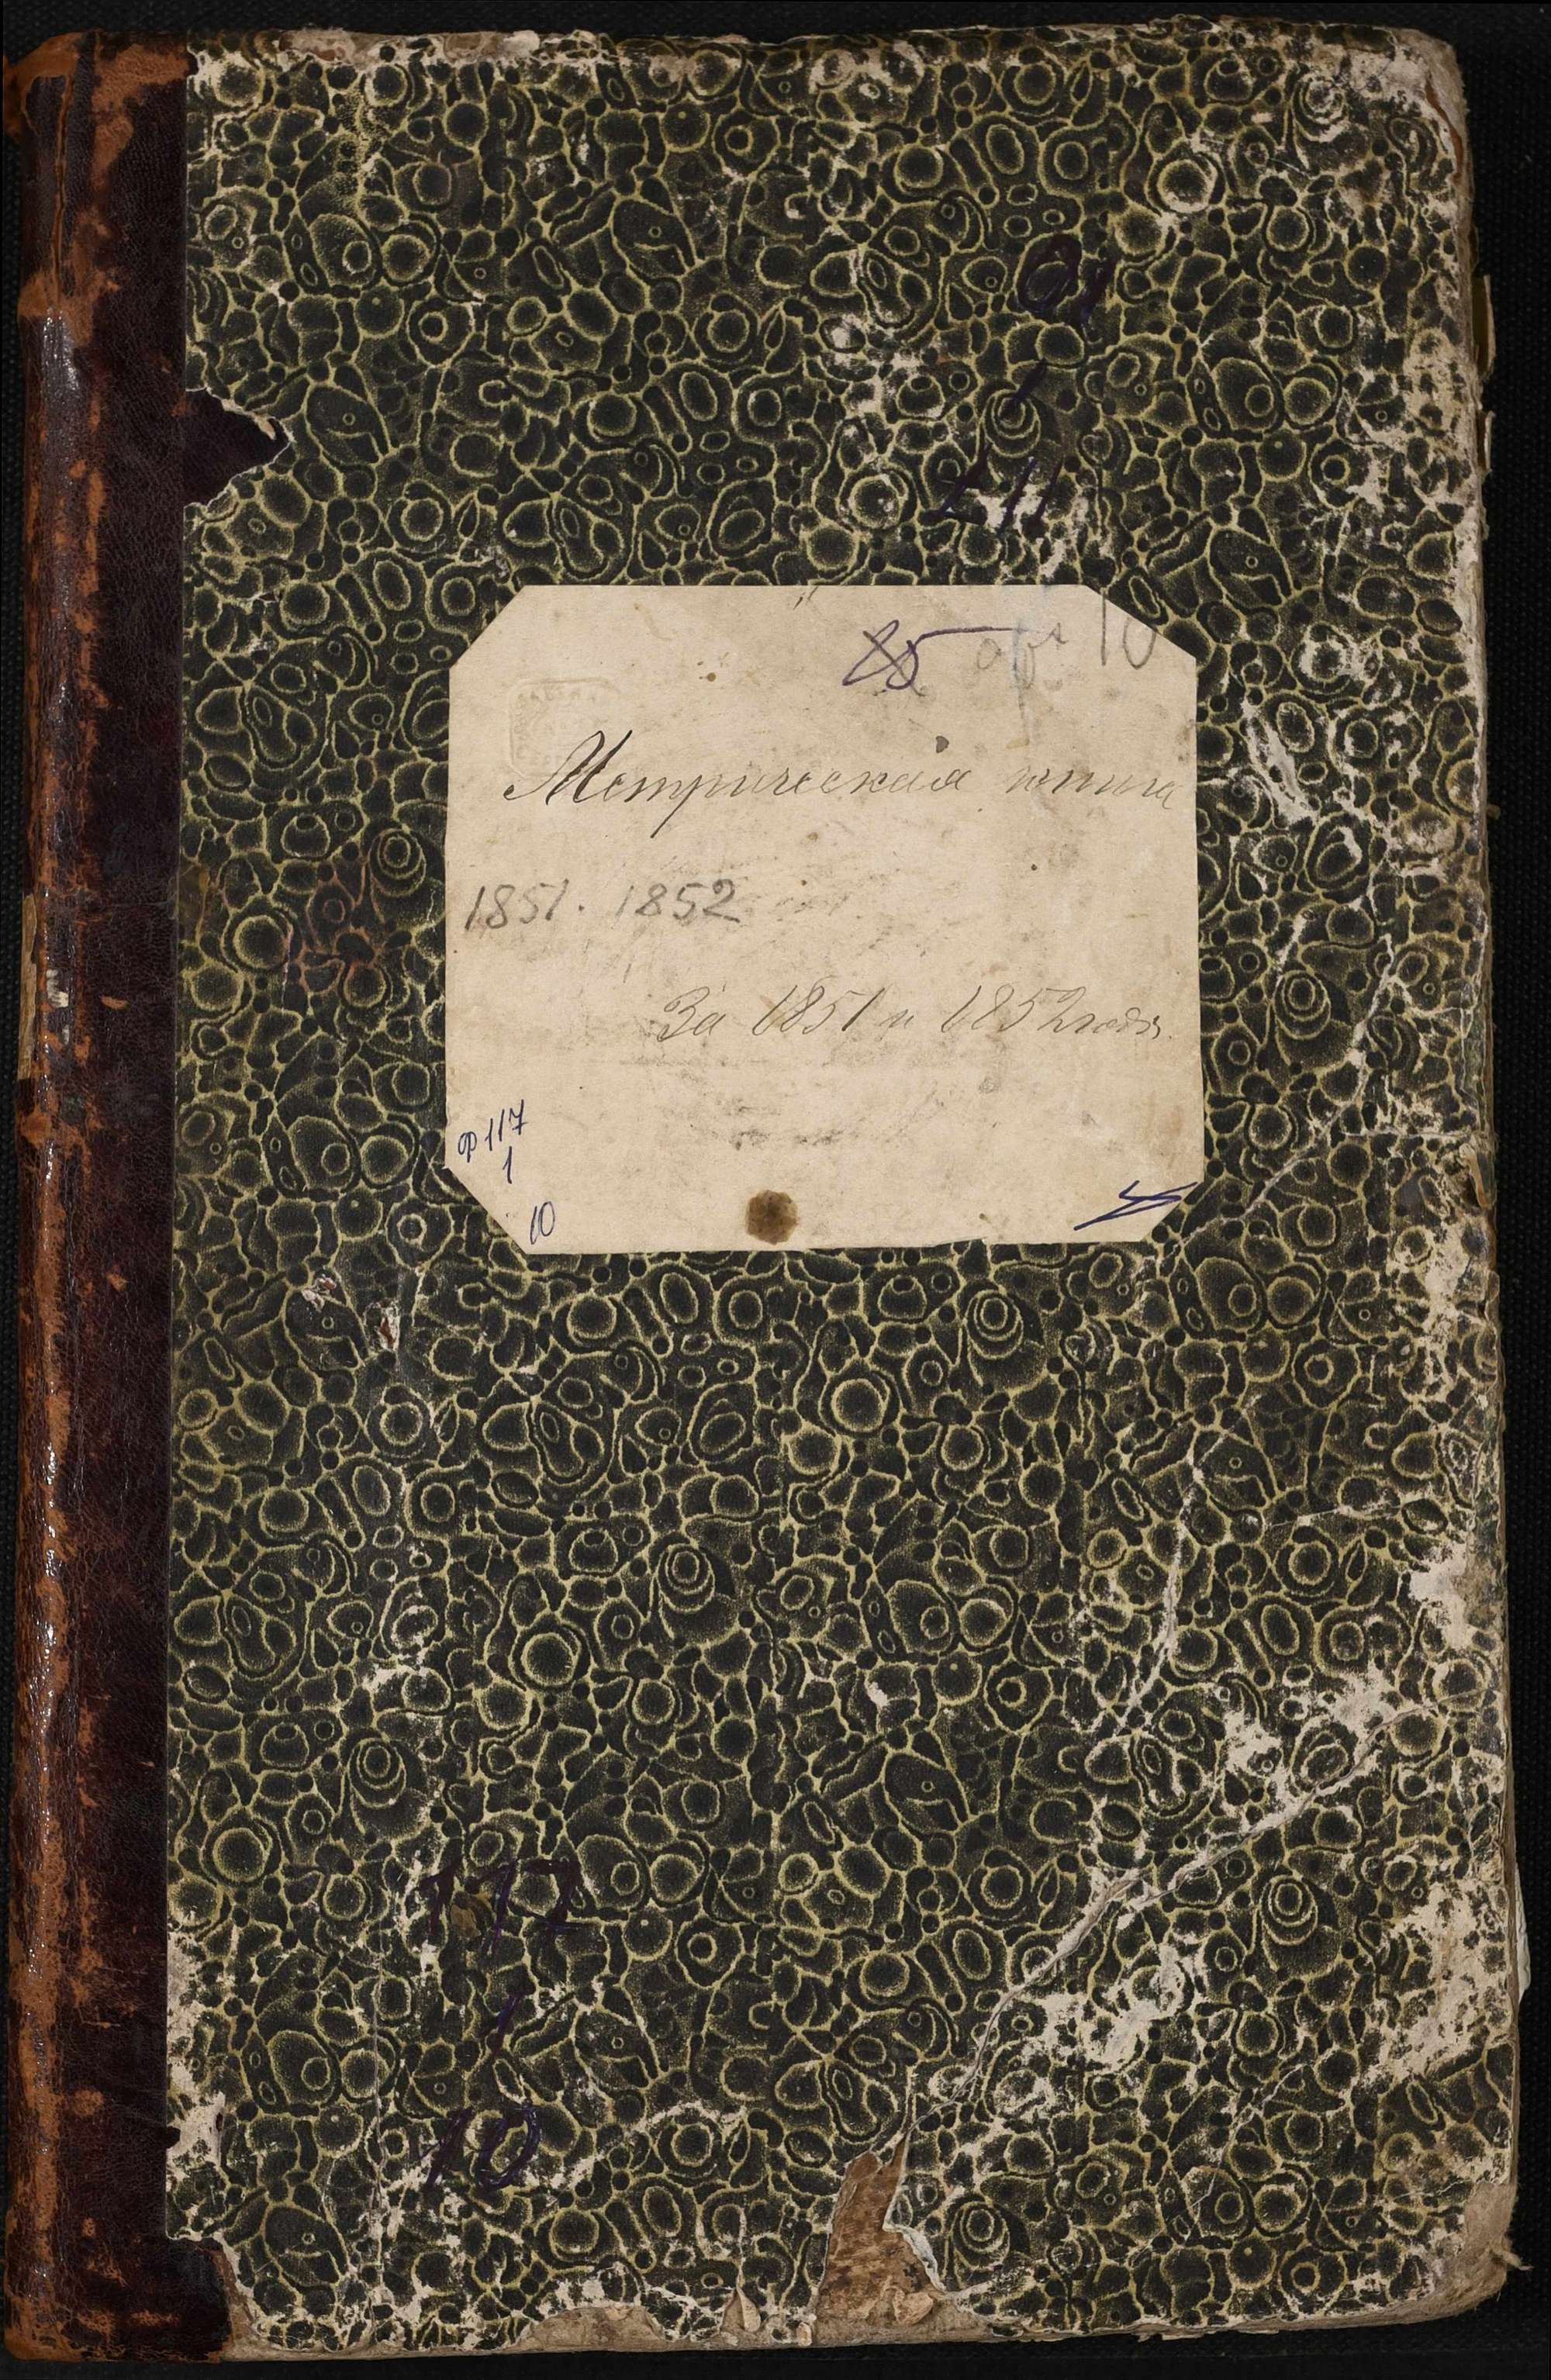 10
1
117
85
10
Метрическая книга
1851. 1852
За 1851 и 1852 годъ.
Ф 117
1
10
117
1
10